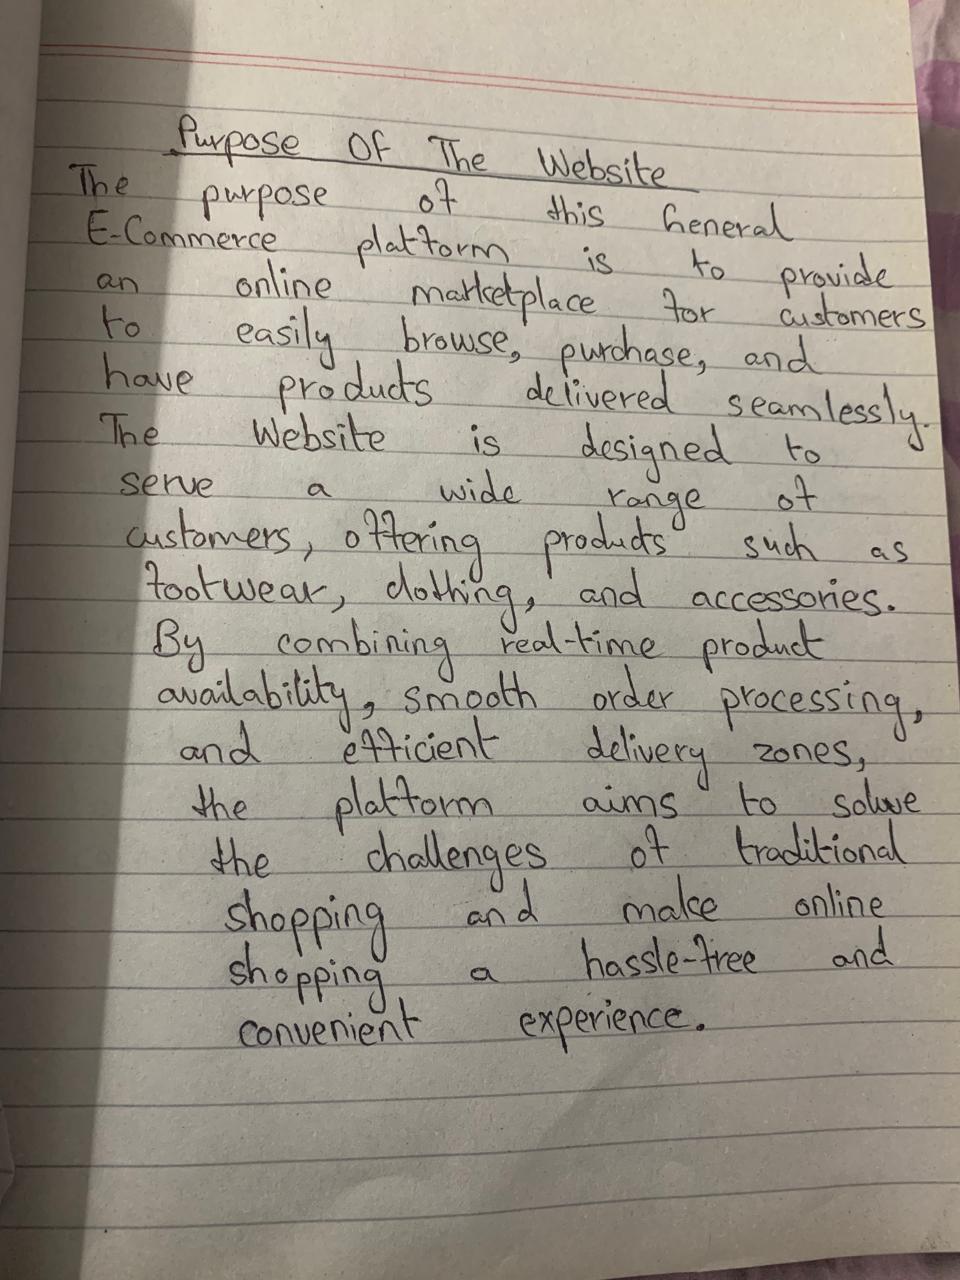 Purpose Of The Website
The purpose of this General
E-Commerce platform is to provide
an online marketplace for customers
to easily browse, purchase, and
have products delivered seamlessly.
The Website is designed to
serve a wide range of
customers, offering products such as
footwear, clothing, and accessories.
By combining real-time product
availability, smooth order processing,
and efficient delivery zones,
the platform aims to solve
the challenges of traditional
shopping and make online
shopping a hassle-free and
convenient experience.